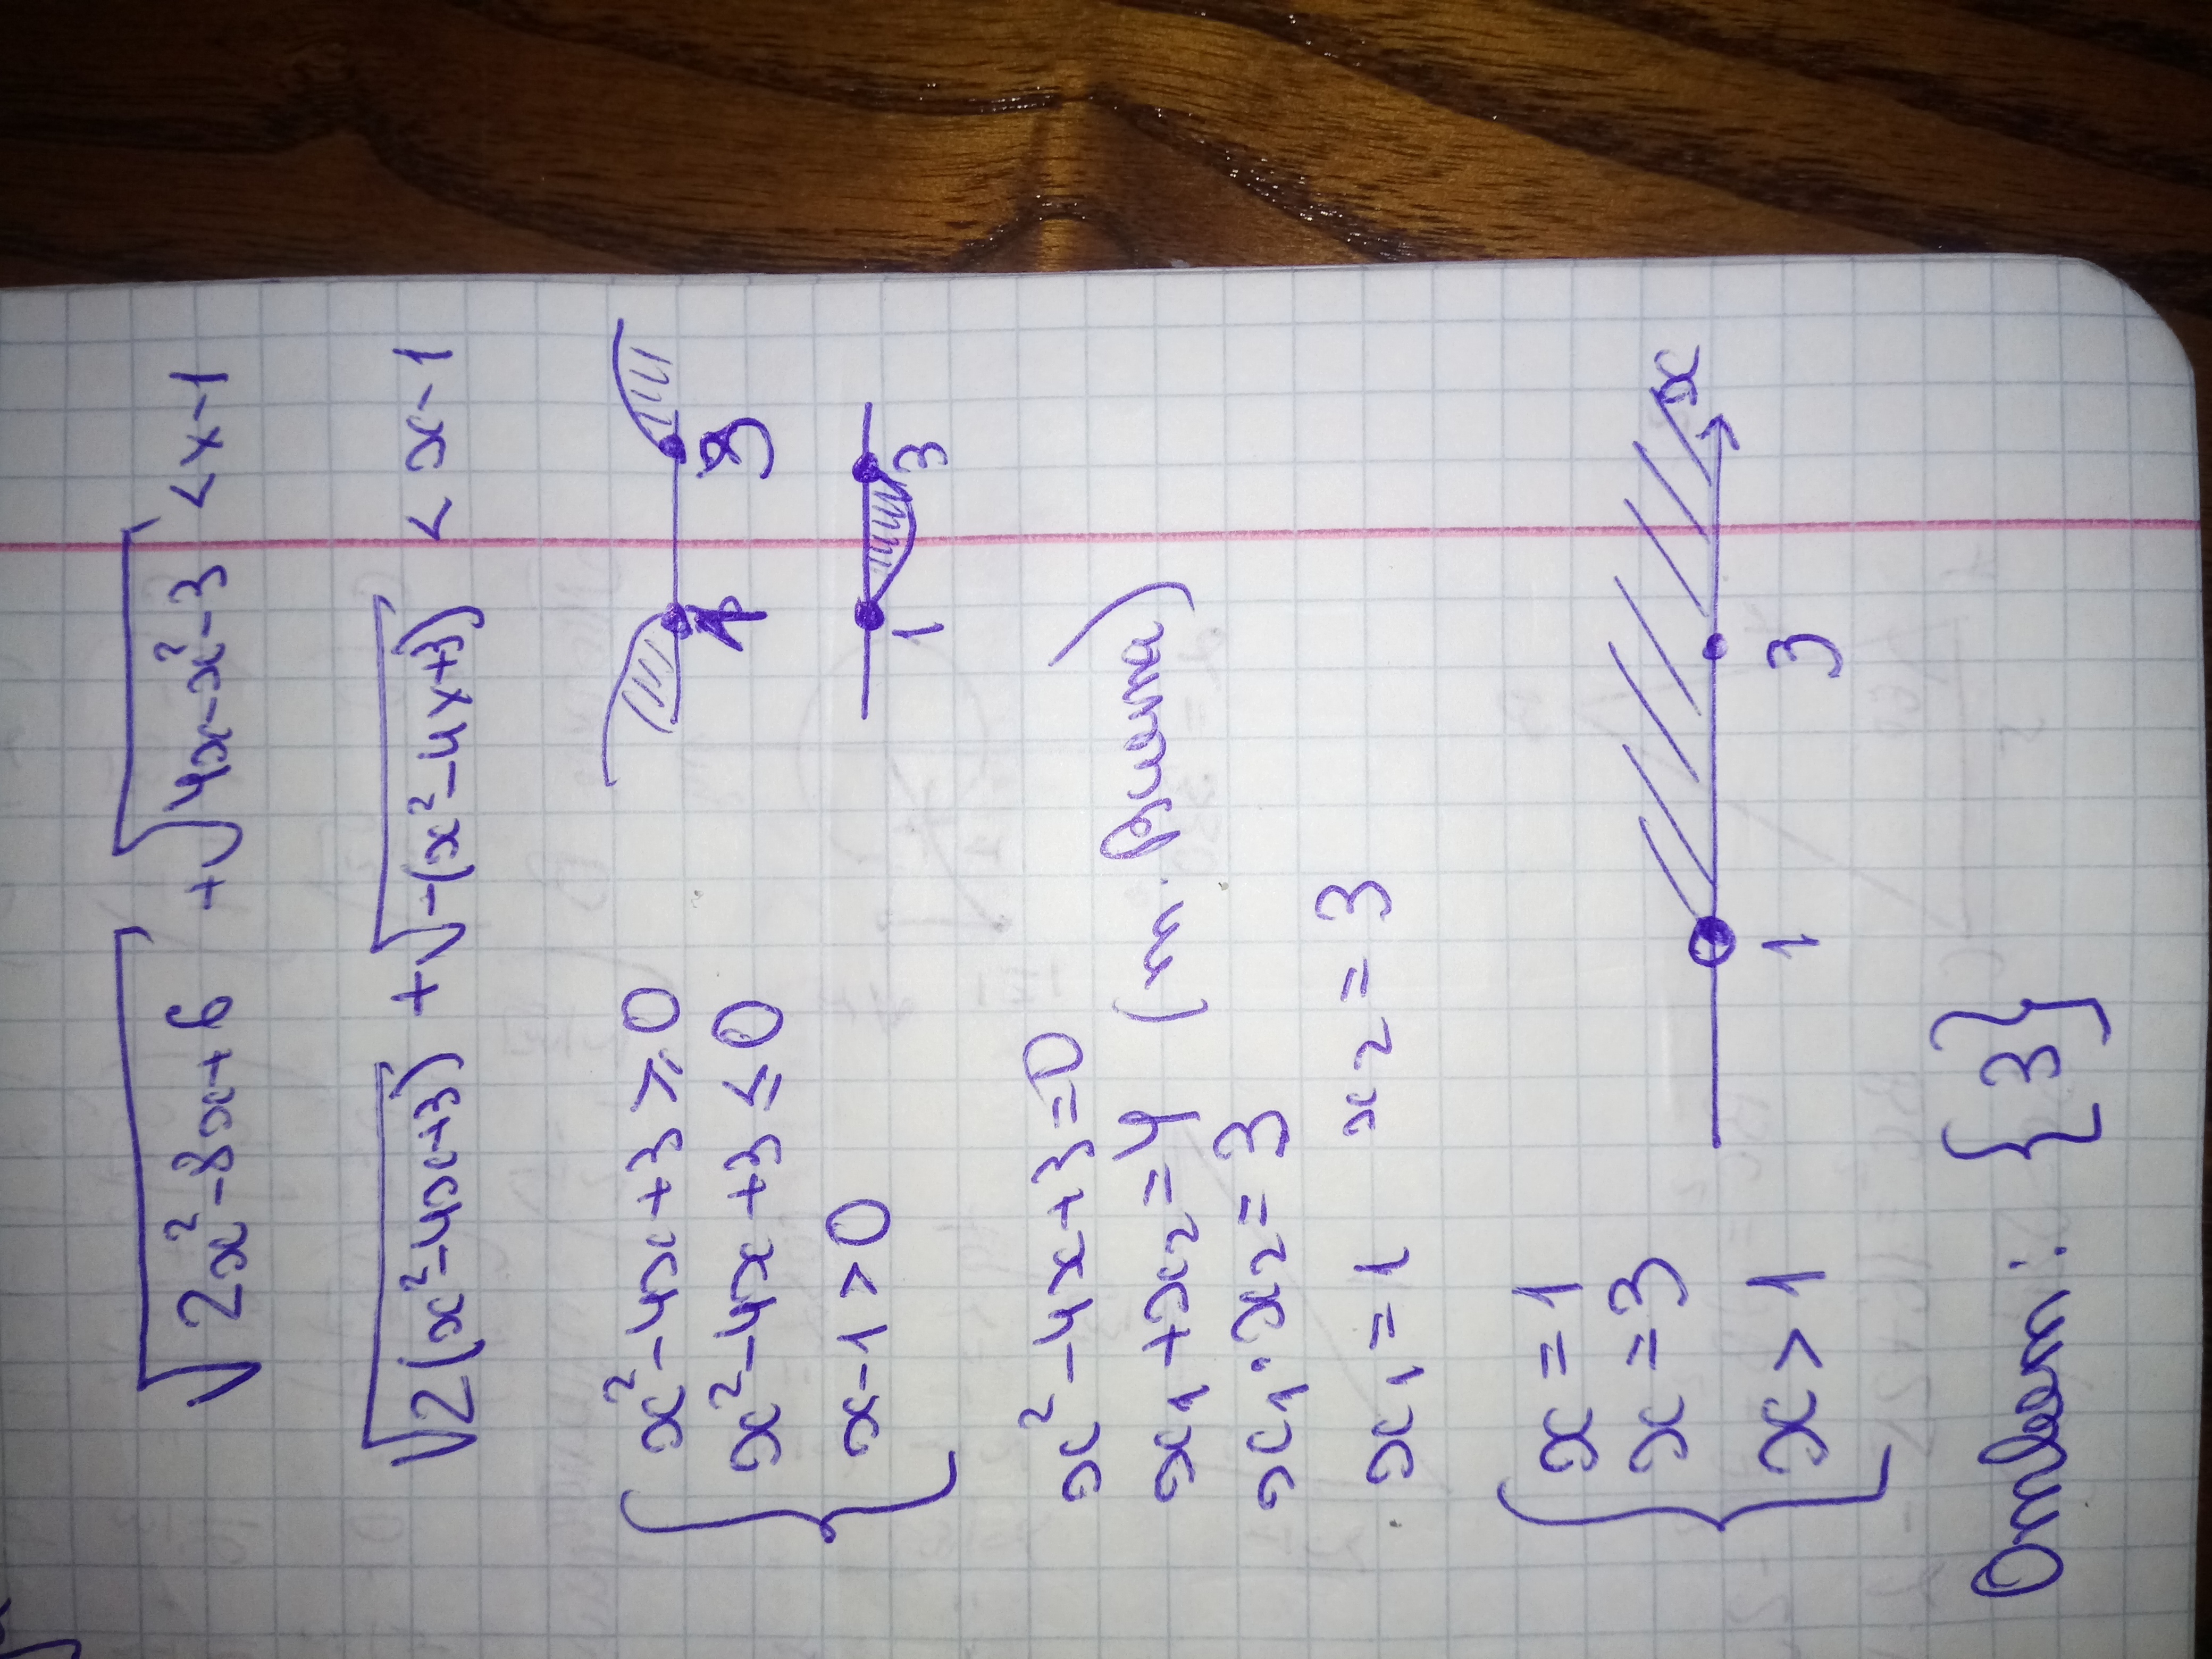 √2x²-8x+6 + √4x-x²-3 < x-1
√2(x²-4x+3) + √-(x²-4x+3) < x-1
{ x²-4x+3 ≥ 0
x²-4x+3 ≤ 0
x-1 > 0
3
1 3
x²-4x+3=0
x₁+x₂=4 (т. Виета)
x₁·x₂=3
x₁=1 x₂=3
{ x=1
x=3
x>1
1 3 x
Ответ: {3}